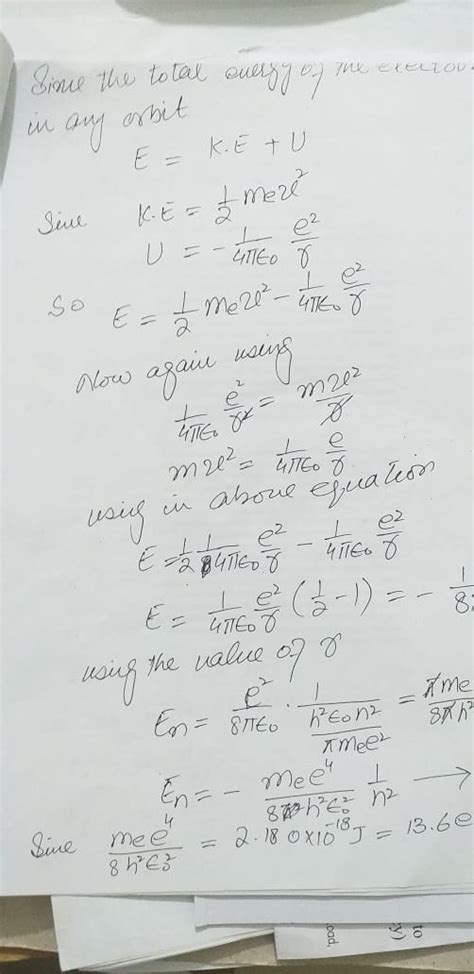 Since the total energy of the electron
in any orbit
E = K.E + U
Sine K.E = 1/2 mev²
U = - 1/4πε₀ e²/r
So E = 1/2 mev² - 1/4πε₀ e²/r
Now again using
1/4πε₀ e²/r² = mv²/r
mv² = 1/4πε₀ e/r
using in above equation
E = 1/2 1/4πε₀ e²/r - 1/4πε₀ e²/r
E = 1/4πε₀ e²/r (1/2 - 1) = - 1/8
using the value of r
En = e²/8πε₀ · 1/(h²ε₀n²/πmee²) = πme/8πh²
En = - mee⁴/8h²ε₀² 1/n² →
Sine mee⁴/8h²ε₀² = 2.180×10⁻¹⁸J = 13.6e